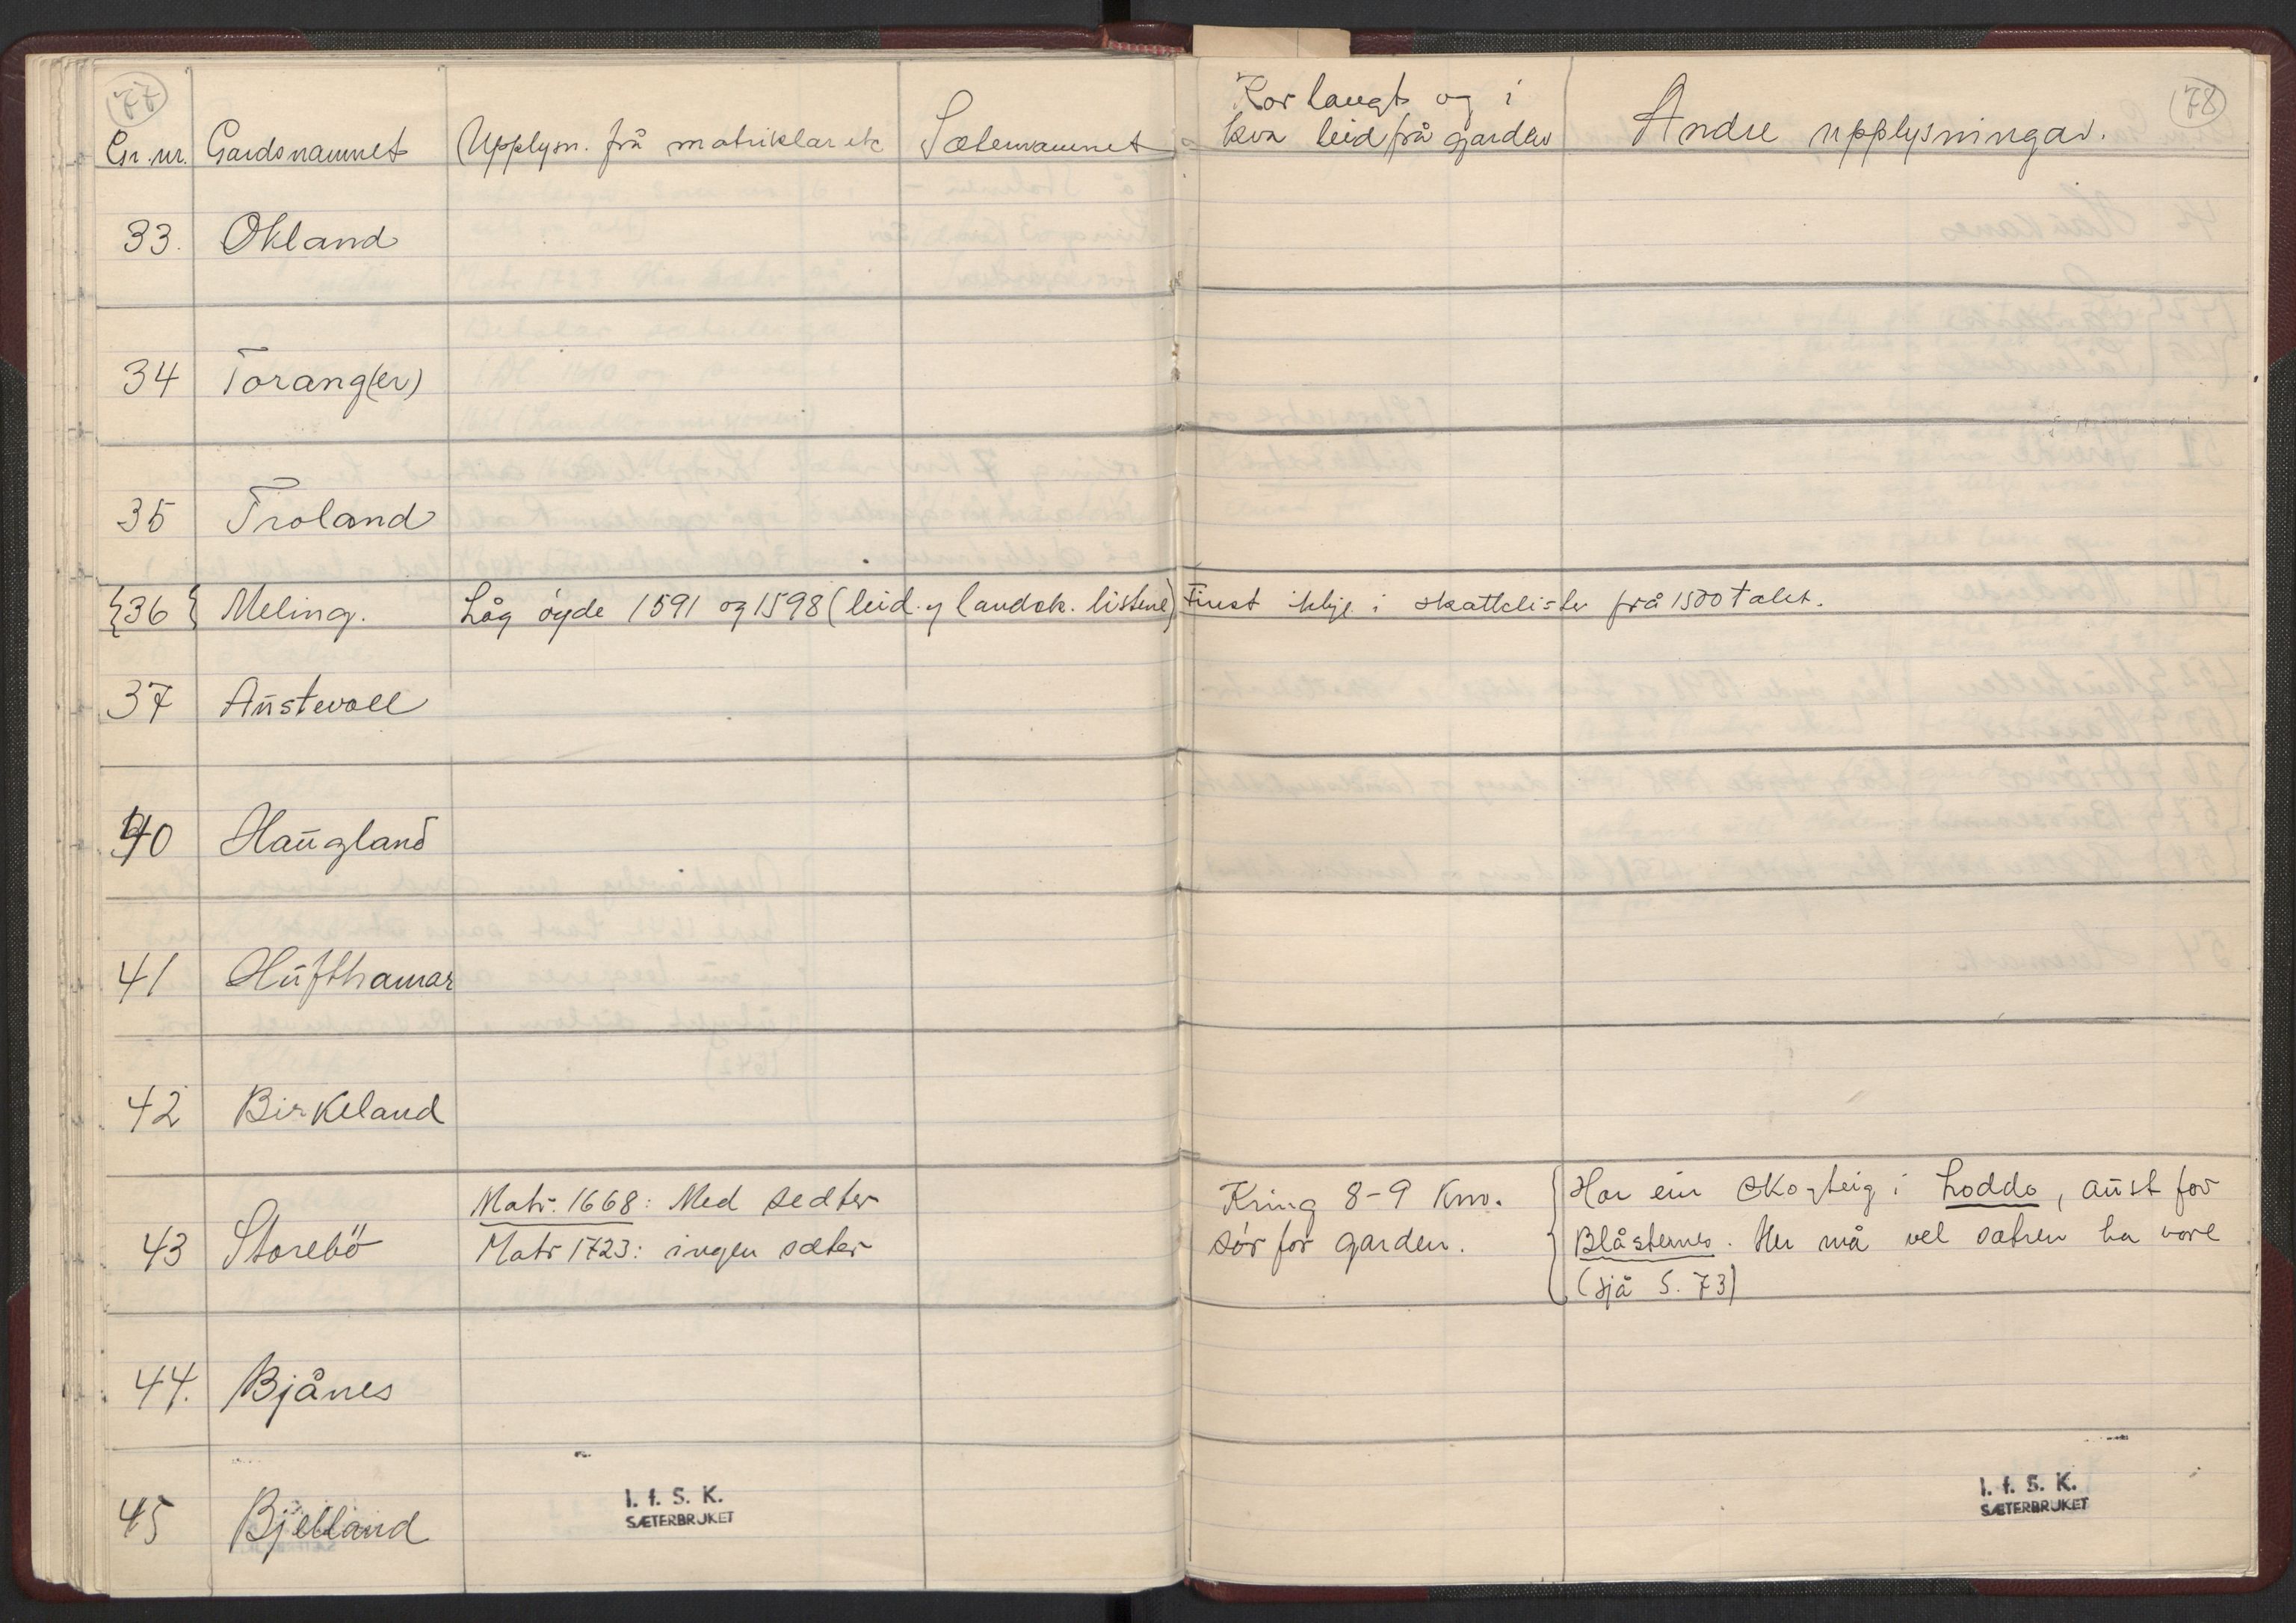 77
Gr. nr. Gardsnamnet Upplysn. frå matriklar etc Sæternamnet
33. Økland
34 Torang(er)
35 Troland
{36{ Meling. Låg øyde 1591 og 1598 (leid. og landsk. listene)
37 Aŭstevoll
40 Haŭgland
41 Hŭfthamar
42 Birkeland
43 Storebö
Matr. 1668: Med sedter
Matr 1723: ingen sæter
44. Bjånes
45 Bjelland
I. f. S. K.
SÆTERBRUKET
78
Kor langt og i
kva leid frå garden
Andre upplysningar.
Finst ikkje i skattelister frå 1500 talet.
Kring 8-9 Km.
sør for garden.
Har ein skogteig i Loddo, aŭst for
Blåsternes. Her må vel sætren ha vore
(sjå S. 73)
I. f. S. K.
SÆTERBRUKET